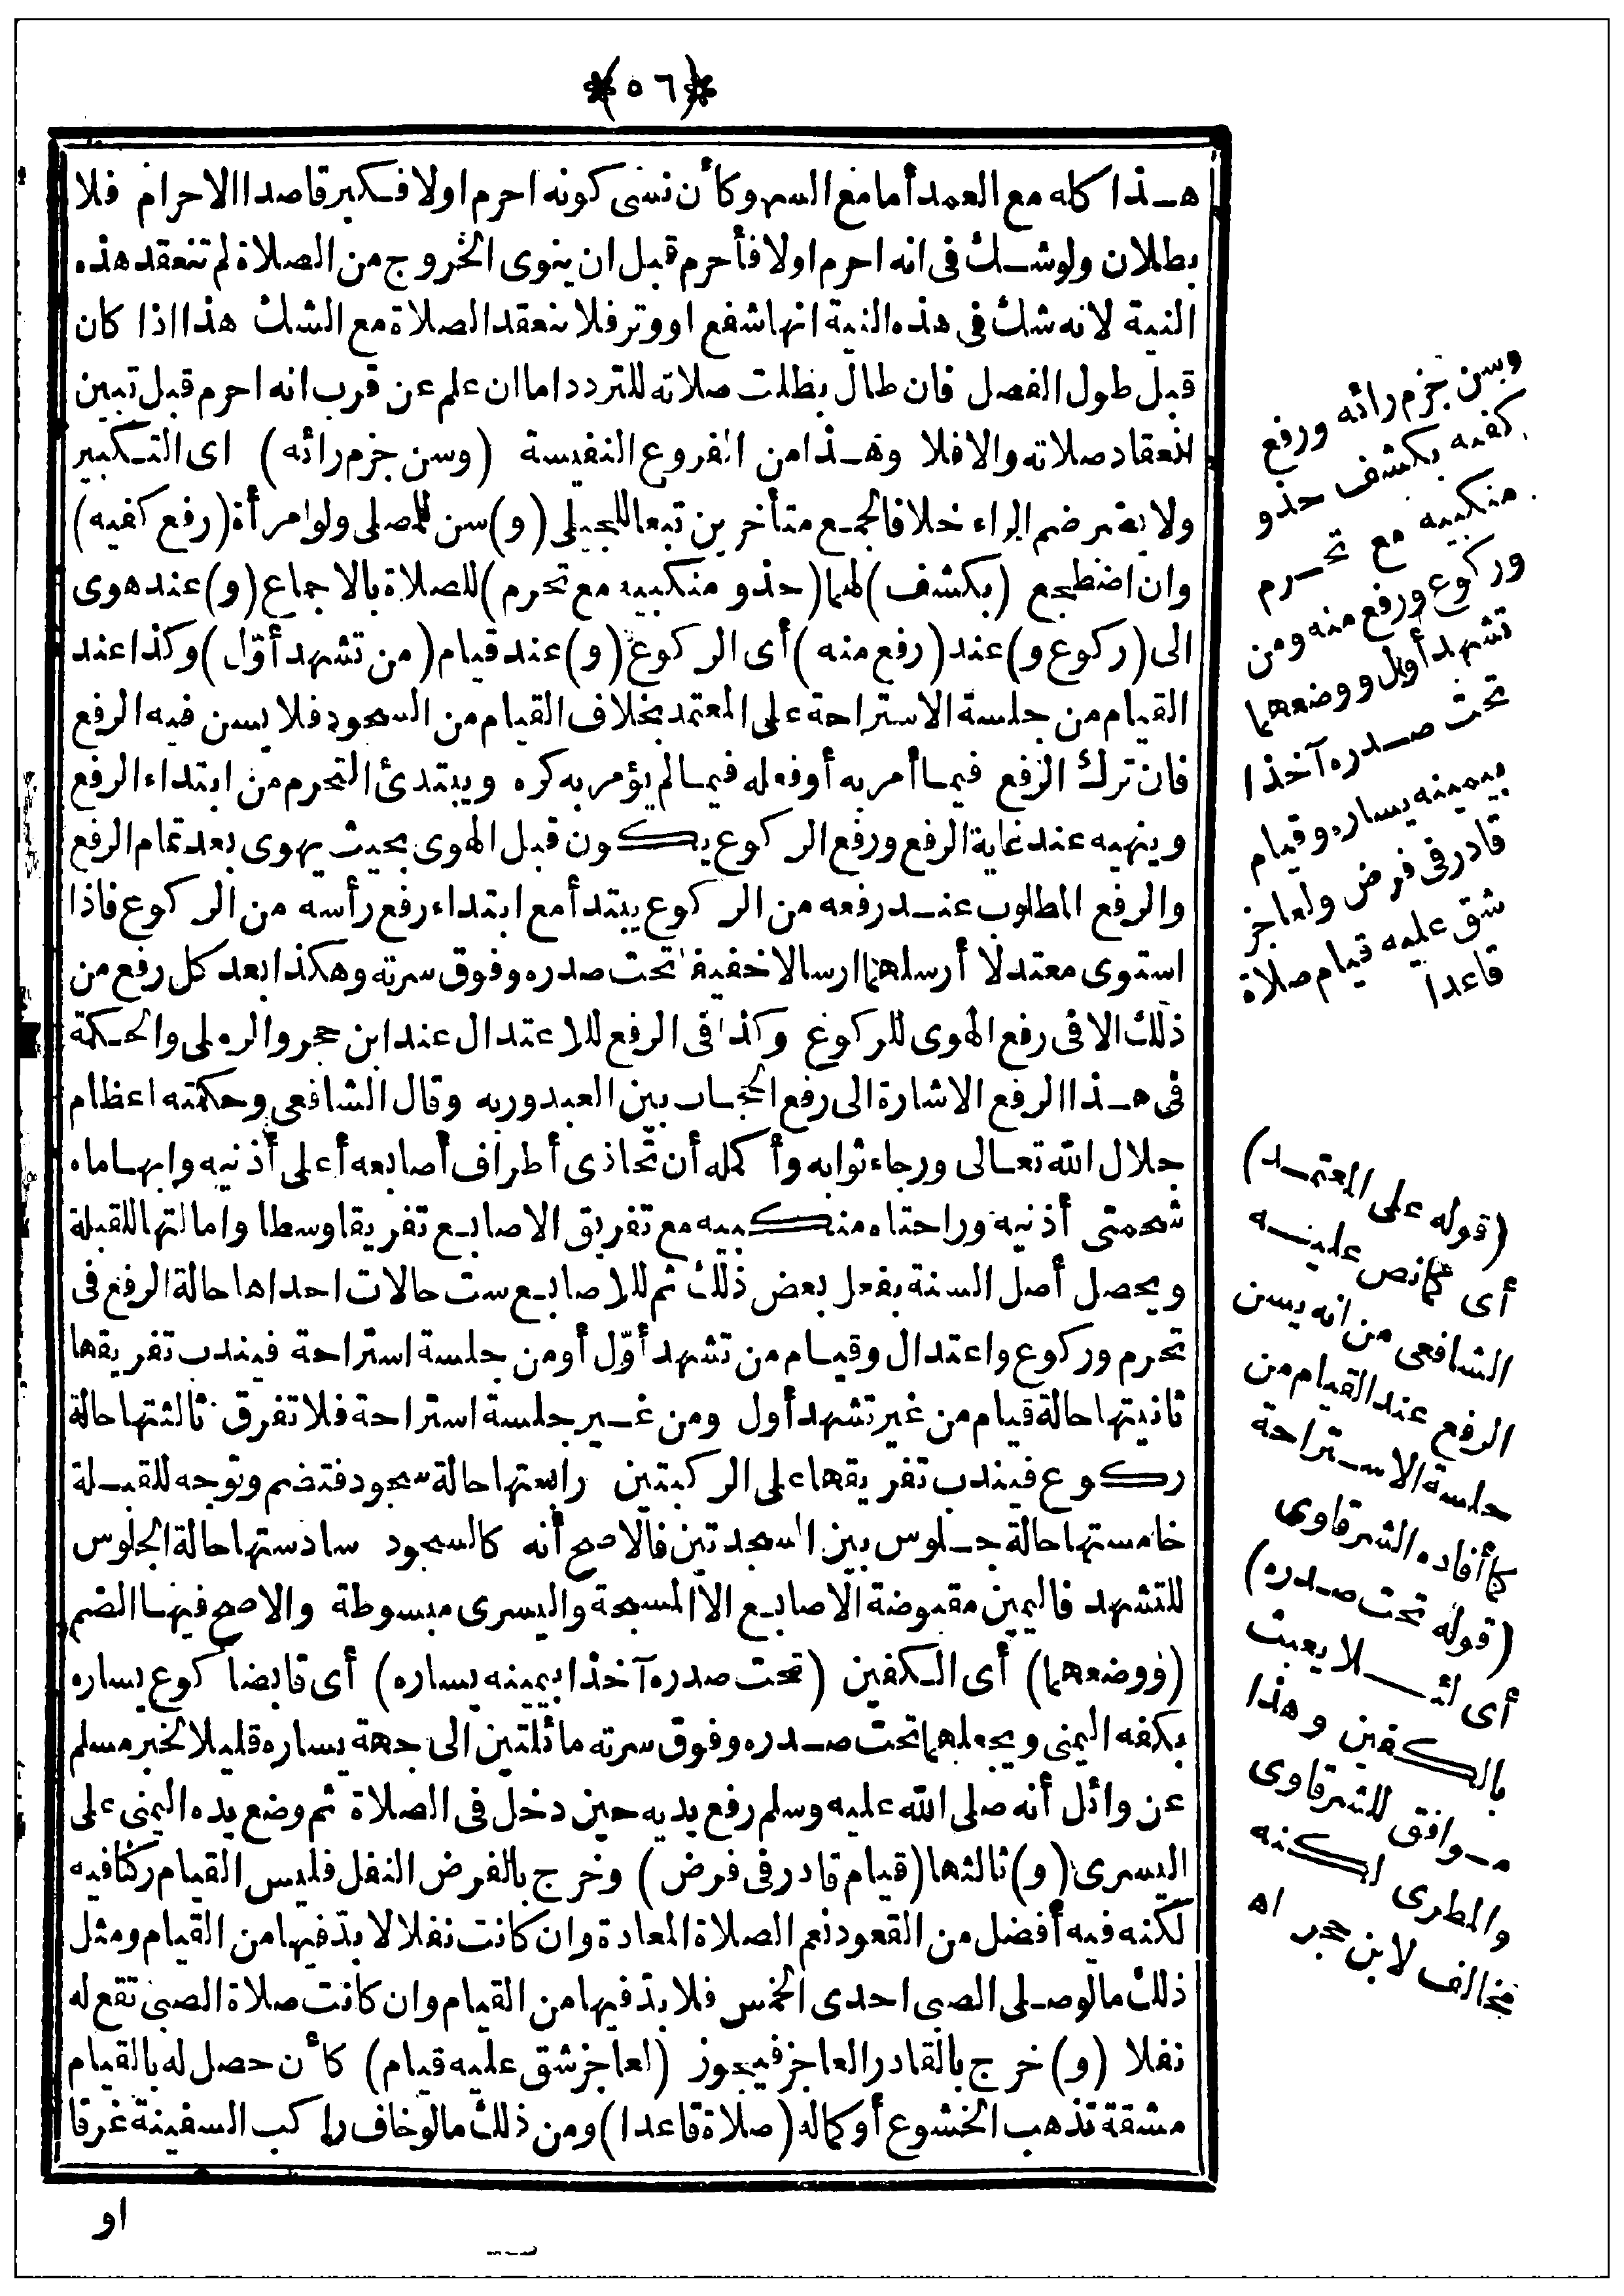 ﴿٥٦﴾
هذا كله مع العمد أما مع السهو كأن نسى كونه احرم اولا فكبر قاصدا الاحرام فلا
بطلان ولو شك فى انه احرم اولا فأحرم قبل ان ينوى الخروج من الصلاة لم تنعقد هذه
النية لانه شك فى هذه النية انها شفع او وتر فلا تنعقد الصلاة مع الشك هذا اذا كان
قبل طول الفصل فان طال بطلت صلاته للتردد اما ان علم عن قرب انه احرم قبل تبين
انعقاد صلاته والا فلا وهذا من الفروع النفيسة (وسن جزم رائه) اى التكبير
ولا يضر ضم الراء خلافا لجمع متأخرين تبعا للجيلى (و) سن للمصلى ولو امرأة (رفع كفيه)
وان اضطجع (بكشف) لهما (حذو منكبيه مع تحرم) للصلاة بالاجماع (و) عند هوى
الى (ركوع و) عند (رفع منه) أى الركوع (و) عند قيام (من تشهد أوّل) وكذا عند
القيام من جلسة الاستراحة على المعتمد بخلاف القيام من السجود فلا يسن فيه الرفع
فان ترك الرفع فيما أمر به أو فعله فيما لم يؤمر به كره ويبتدئ التحرم من ابتداء الرفع
وينهيه عند غاية الرفع ورفع الركوع يكون قبل الهوى بحيث يهوى بعد تمام الرفع
والرفع المطلوب عند رفعه من الركوع يبتدأ مع ابتداء رفع رأسه من الركوع فاذا
استوى معتدلا أرسلهما ارسالا خفيفا تحت صدره وفوق سرته وهكذا بعد كل رفع من
ذلك الا فى رفع الهوى للركوع وكذا فى الرفع للاعتدال عند ابن حجر والرملى والحكمة
فى هذا الرفع الاشارة الى رفع الحجاب بين العبد وربه وقال الشافعى وحكمته اعظام
جلال الله تعالى ورجاء ثوابه وأكمله أن تحاذى أطراف أصابعه أعلى أذنيه وابهاماه
شحمتى أذنيه وراحتاه منكبيه مع تفريق الاصابع تفريقا وسطا وامالتها للقبلة
ويحصل أصل السنة بفعل بعض ذلك ثم للاصابع ست حالات احداها حالة الرفع فى
تحرم وركوع واعتدال وقيام من تشهد أوّل أو من جلسة استراحة فيندب تفريقها
ثانيتها حالة قيام من غير تشهد أول ومن غير جلسة استراحة فلا تفرق ثالثتها حالة
ركوع فيندب تفريقها على الركبتين رابعتها حالة سجود فتضم وتوجه للقبلة
خامستها حالة جلوس بين السجدتين فالاصح أنه كالسجود سادستها حالة الجلوس
للتشهد فاليمين مقبوضة الاصابع الا المسبحة واليسرى مبسوطة والاصح فيها الضم
(ووضعهما) أى الكفين (تحت صدره آخذا بيمينه يساره) أى قابضا كوع يساره
بكفه اليمنى ويجعلهما تحت صدره وفوق سرته مائلتين الى جهة يساره قليلا لخبر مسلم
عن وائل أنه صلى الله عليه وسلم رفع يديه حين دخل فى الصلاة ثم وضع يده اليمنى على
اليسرى (و) ثالثها (قيام قادر فى فرض) وخرج بالفرض النفل فليس القيام ركنا فيه
لكنه فيه أفضل من القعود نعم الصلاة المعادة وان كانت نفلا لا بدّ فيها من القيام ومثل
ذلك ما لو صلى الصبى احدى الخمس فلا بدّ فيها من القيام وان كانت صلاة الصبى تقع له
نفلا (و) خرج بالقادر العاجز فيجوز (لعاجز شق عليه قيام) كأن حصل له بالقيام
مشقة تذهب الخشوع أو كماله (صلاة قاعدا) ومن ذلك ما لو خاف راكب السفينة غرقا
او
وسن جزم رائه ورفع
كفيه بكشف حذو
منكبيه مع تحرم
وركوع ورفع منه ومن
تشهد أول ووضعهما
تحت صدره آخذا
بيمينه يساره وقيام
قادر فى فرض ولعاجز
شق عليه قيام صلاة
قاعدا
(قوله على المعتمد)
أى كما نص عليه
الشافعى من انه يسن
الرفع عند القيام من
جلسة الاستراحة
كما أفاده الشرقاوى
(قوله تحت صدره)
أى لئلا يعبث
بالكفين وهذا
موافق للشرقاوى
والمطرى لكنه
مخالف لابن حجر اه